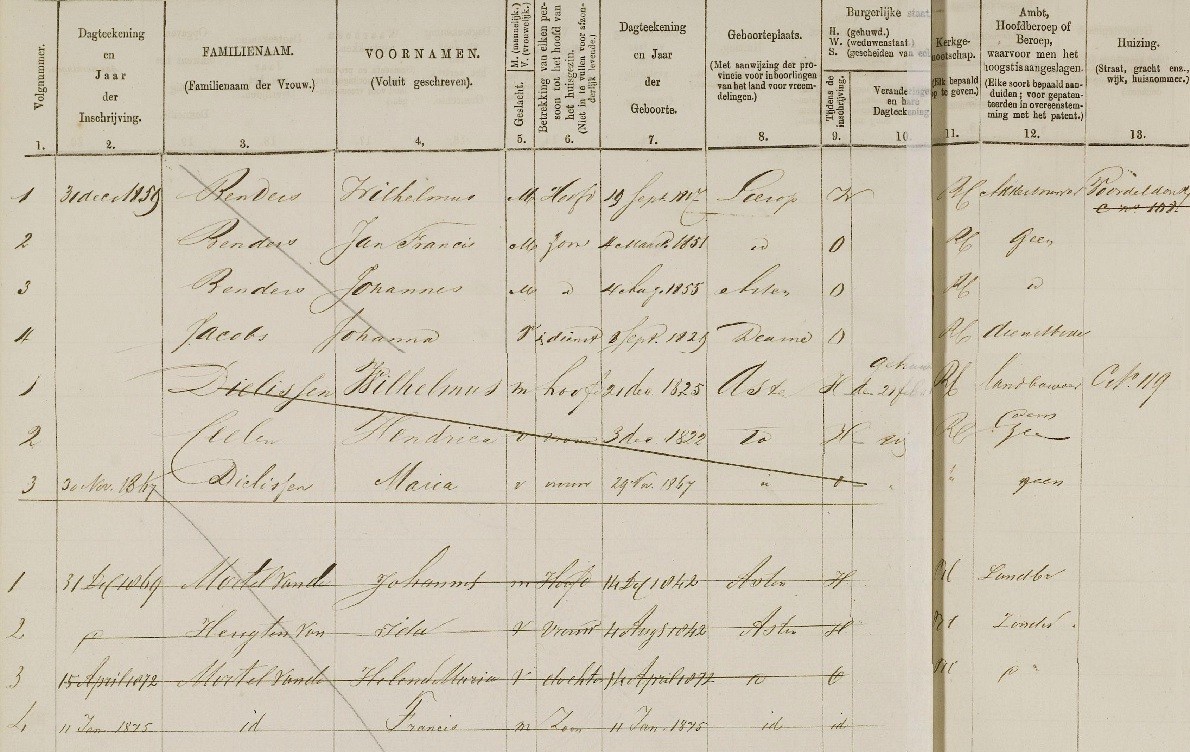 Volgnummer.
1.
Dagteekening
en
Jaar
der
Inschrijving.
2.
FAMILIENAAM.
(Familienaam der Vrouw.)
3.
VOORNAMEN.
(Voluit geschreven.)
4,
M. (mannelijk.)
V. (vrouwelijk.)
Geslacht.
5.
Betrekking van elken per-
soon tot het hoofd van
het huisgezin.
(Niet in te vullen voor afzon-
derlijk levende.)
6.
Dagteekening
en Jaar
der
Geboorte.
7.
Geboorteplaats.
(Met aanwijzing der pro-
vincie voor inboorlingen
van het land voor vreem-
delingen.)
8.
Burgerlijke staat
H. (gehuwd.)
W. (weduwenstaat
S. (gescheiden van
Tijdens de
inschrijving.
9.
Verande
en
Dagteekening
10
Kerkge-
nootschap.
(Elk bepaald
op te geven.)
11.
Ambt,
Hoofdberoep of
Beroep,
waarvoor men het
hoogst is aangeslagen.
(Elke soort bepaald aan-
duiden; voor gepaten-
teerden in overeenstem-
ming met het patent.)
12.
Huizing.
(Straat, gracht enz.,
wijk, huisnommer.)
13.
1 31 dec 1859 Renders Wilhelmus M Hoofd 19 Sept 1817 Lierop W RC Akkerbouwer
2 Renders Jan Francis M Zoon 4 Maart 1851 id O RC Geen
3 Renders Johannes M id 4 Aug 1855 Asten O RC id
4 Jacobs Johanna V dienst 8 Sept 1829 Deurne O RC dienstbode
1 Dielissen Wilhelmus m hoofd 21 dec 1825 Asten H RC landbouwer C No 119
2 Hendrica v vrouw 3 dec 1822 H RC Geen
3 30 Nov. 1867 Dielissen Maria v 29 Nov. 1867 " O " " geen
1 31 Dec 1869 Mortel Vande Johannes m Hoofd 14 Dec 1842 Asten H RC Landb
2 Heugten Van Ida V Vrouw 4 Aug 1842 Asten H RC Zonder
3 15 April 1872 Mortel Vande Helena Maria V dochter 14 April 1872 O RC
4 11 Jan 1875 id Francis m Zoon 11 Jan. 1875 id id